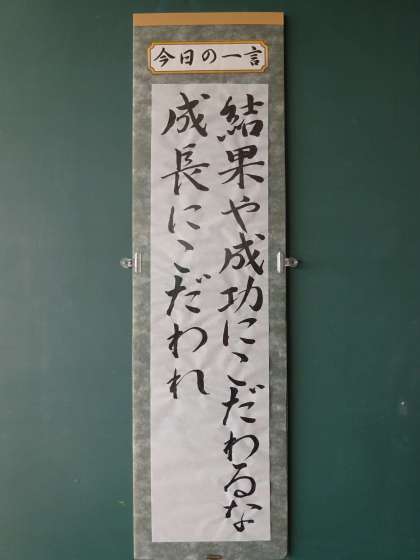 今日の一言
結果や成功にこだわるな
成長にこだわれ